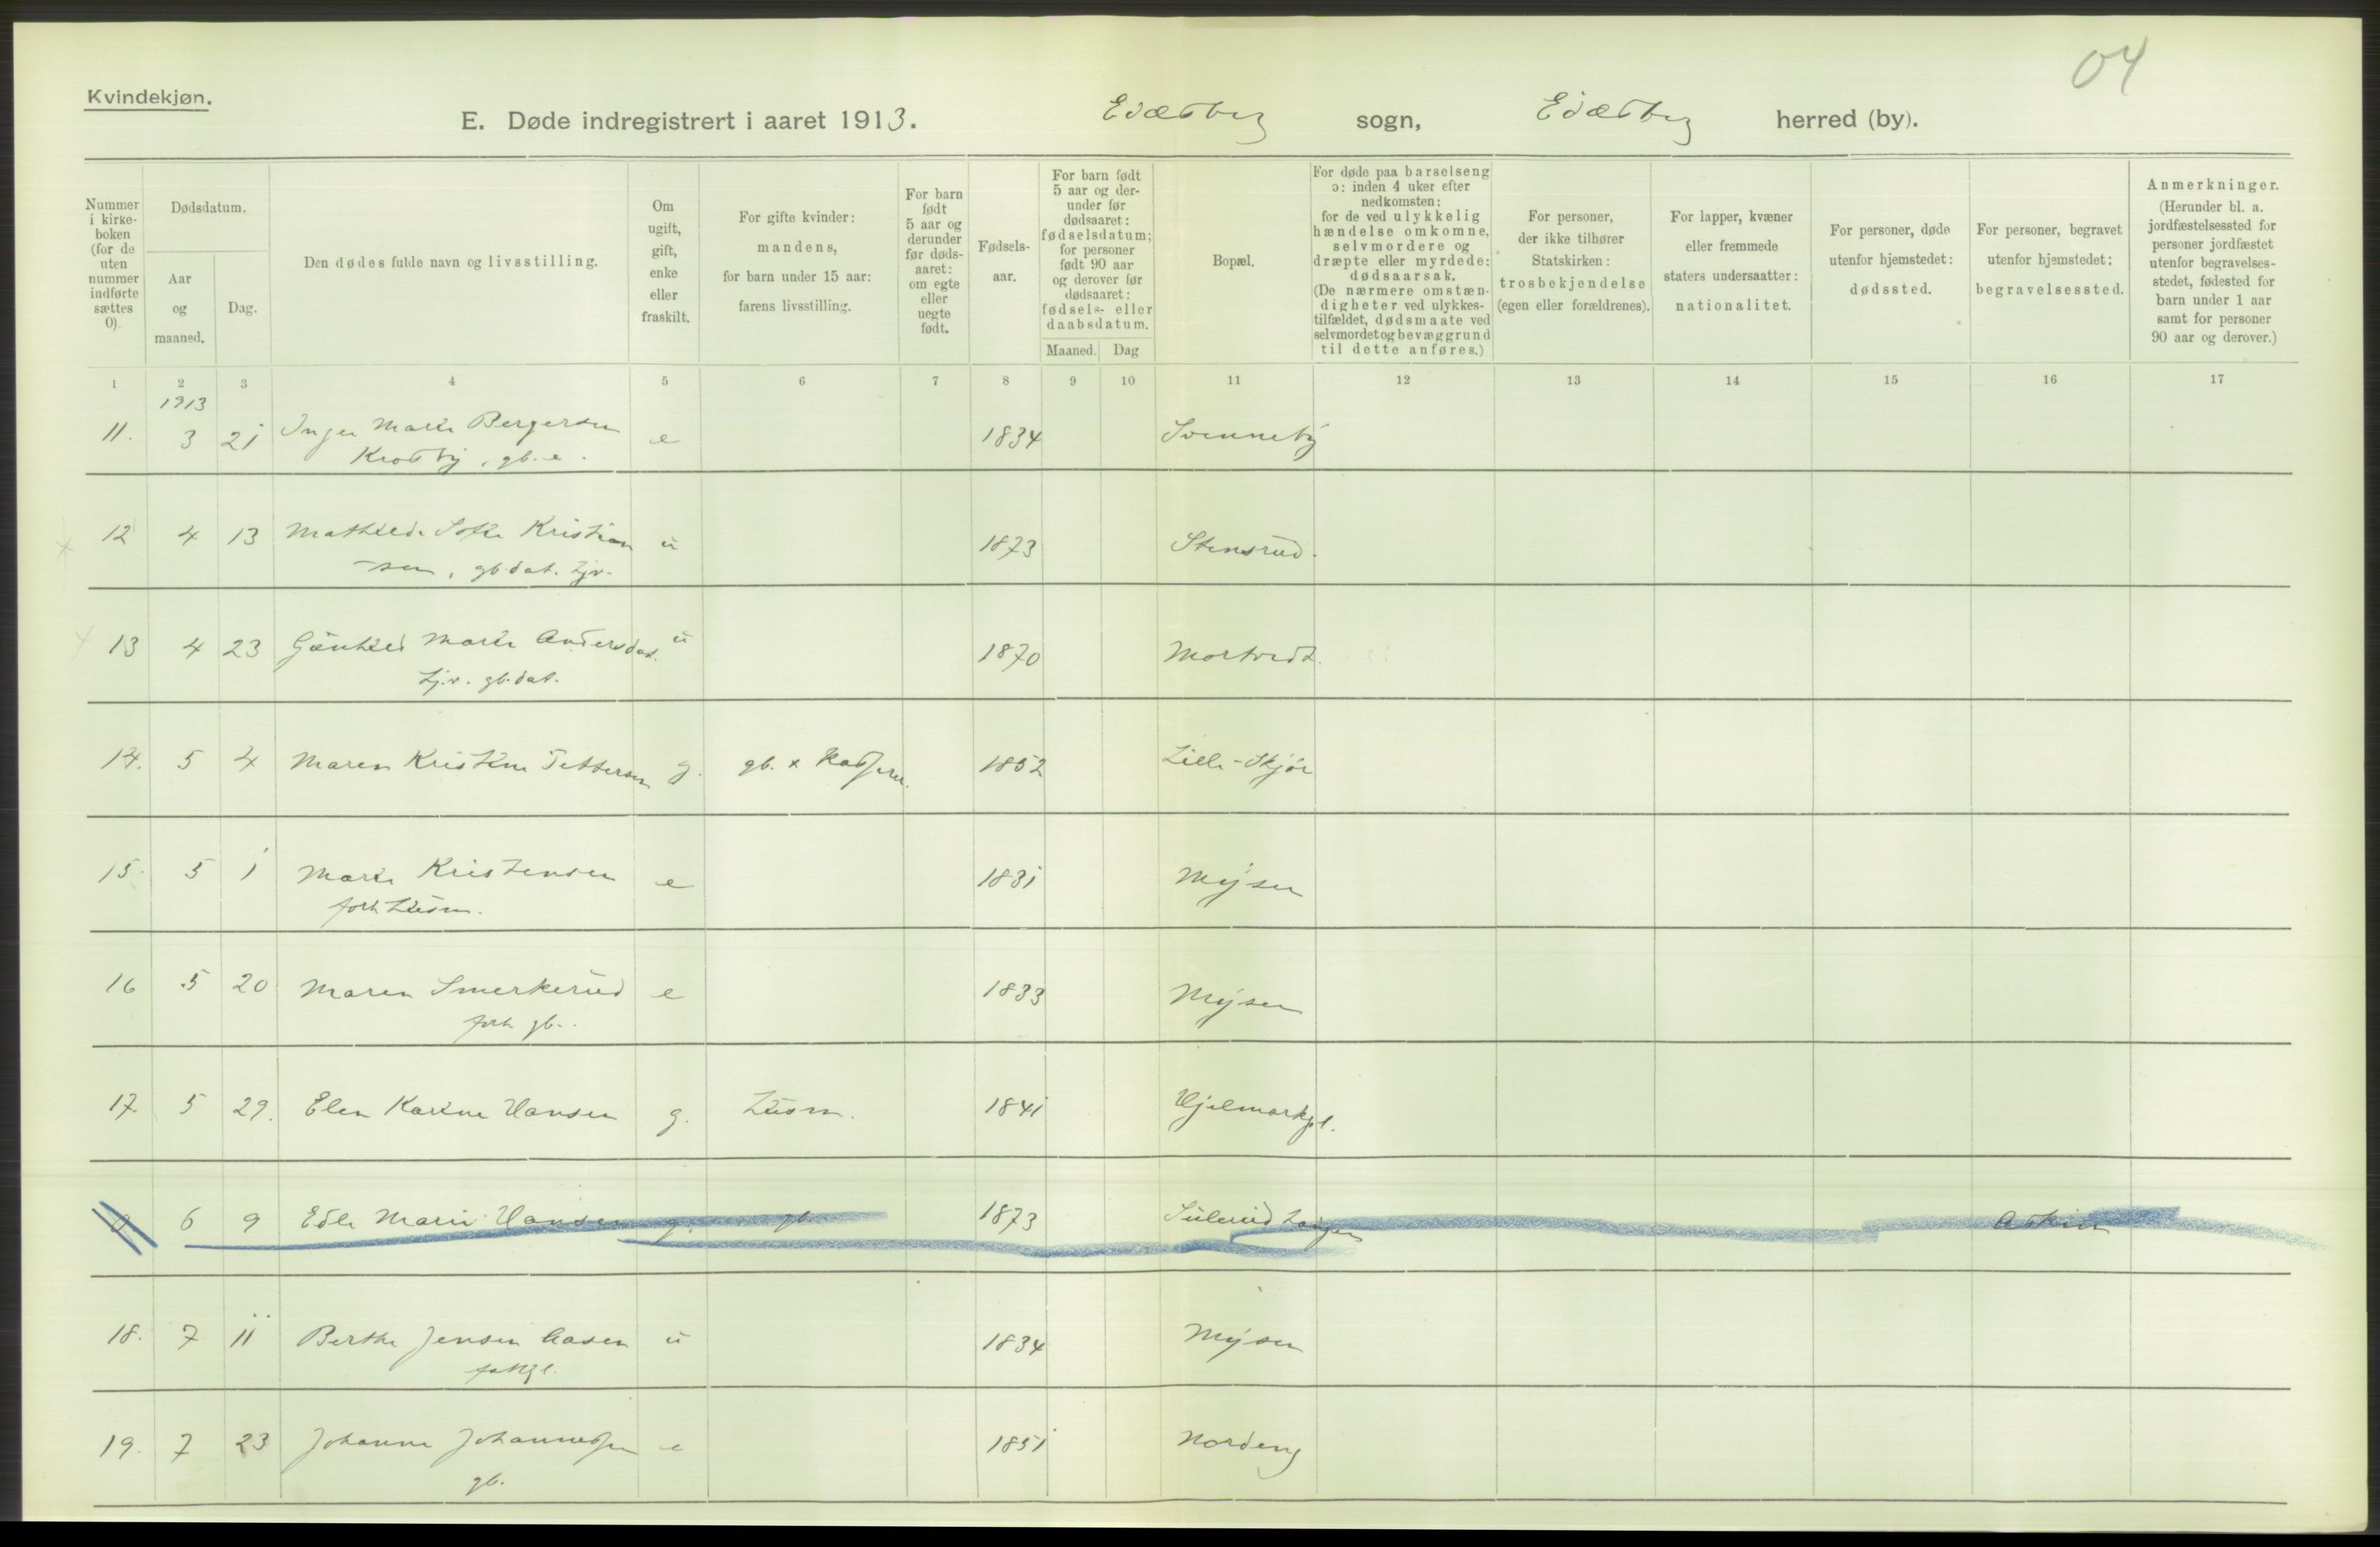 04
Kvindekjøn.
E. Døde indregistrert i aaret 1913. Eidsberg sogn, Eidsberg herred (by).
Nummer i kirke-boken (for de uten nummer indførte sættes 0).
Dødsdatum.
Aar og maaned.
Dag.
Den dødes fulde navn og livsstilling.
Om ugift, gift, enke eller fraskilt.
For gifte kvinder: mandens, for barn under 15 aar: farens livsstilling.
For barn født 5 aar og derunder før døds-aaret: om egte eller uegte født.
Fødsels-aar.
For barn født 5 aar og der-under før dødsaaret: fødselsdatum; for personer født 90 aar og derover før dødsaaret: fødsels- eller daabsdatum.
Maaned. Dag
Bopæl.
For døde paa barselseng ɔ: inden 4 uker efter nedkomsten: for de ved ulykkelig hændelse omkomne, selvmordere og dræpte eller myrdede: dødsaarsak. (De nærmere omstæn-digheter ved ulykkes-tilfældet, dødsmaate ved selvmordet og bevæggrund til dette anføres.)
For personer, der ikke tilhører Statskirken: trosbekjendelse (egen eller forældrenes).
For lapper, kvæner eller fremmede staters undersaatter: nationalitet.
For personer, døde utenfor hjemstedet: dødssted.
For personer, begravet utenfor hjemstedet: begravelsessted.
Anmerkninger. (Herunder bl. a. jordfæstelsessted for personer jordfæstet utenfor begravelses-stedet, fødested for barn under 1 aar samt for personer 90 aar og derover.)
1 2 3 4 5 6 7 8 9 10 11 12 13 14 15 16 17
1913
11. 3 21 Inger Marie Bergersen e 1834 Svenneby
Krosby, gb. e.
12 4 13 Mathilde Sofie Kristian u 1873 Stensrud.
-sen, gb.dat. tj.
13 4 23 Gunhild Marie Andersdat. u 1870 Mortvedt.
tj. gb.dat.
14. 5 4 Maren Kristine Pettersen g. gb. 1852 Lille-Skjør
15. 5 1 Marie Kristensen e 1831 Mysen
forh.
16 5 20 Maren Smerkerud e 1833 Mysen
forh. gb.
17. 5 29. Elen Karine Hansen g. 1841 Hjelmarkpl.
0 6 9 Edle Marie Hansen g. gb. 1873 Sulerud Askim
18. 7 11 Berthe Jensen Aasen u 1834 Mysen
19. 7 23 Johanne Johannesen e 1851 Nordeng
gb.